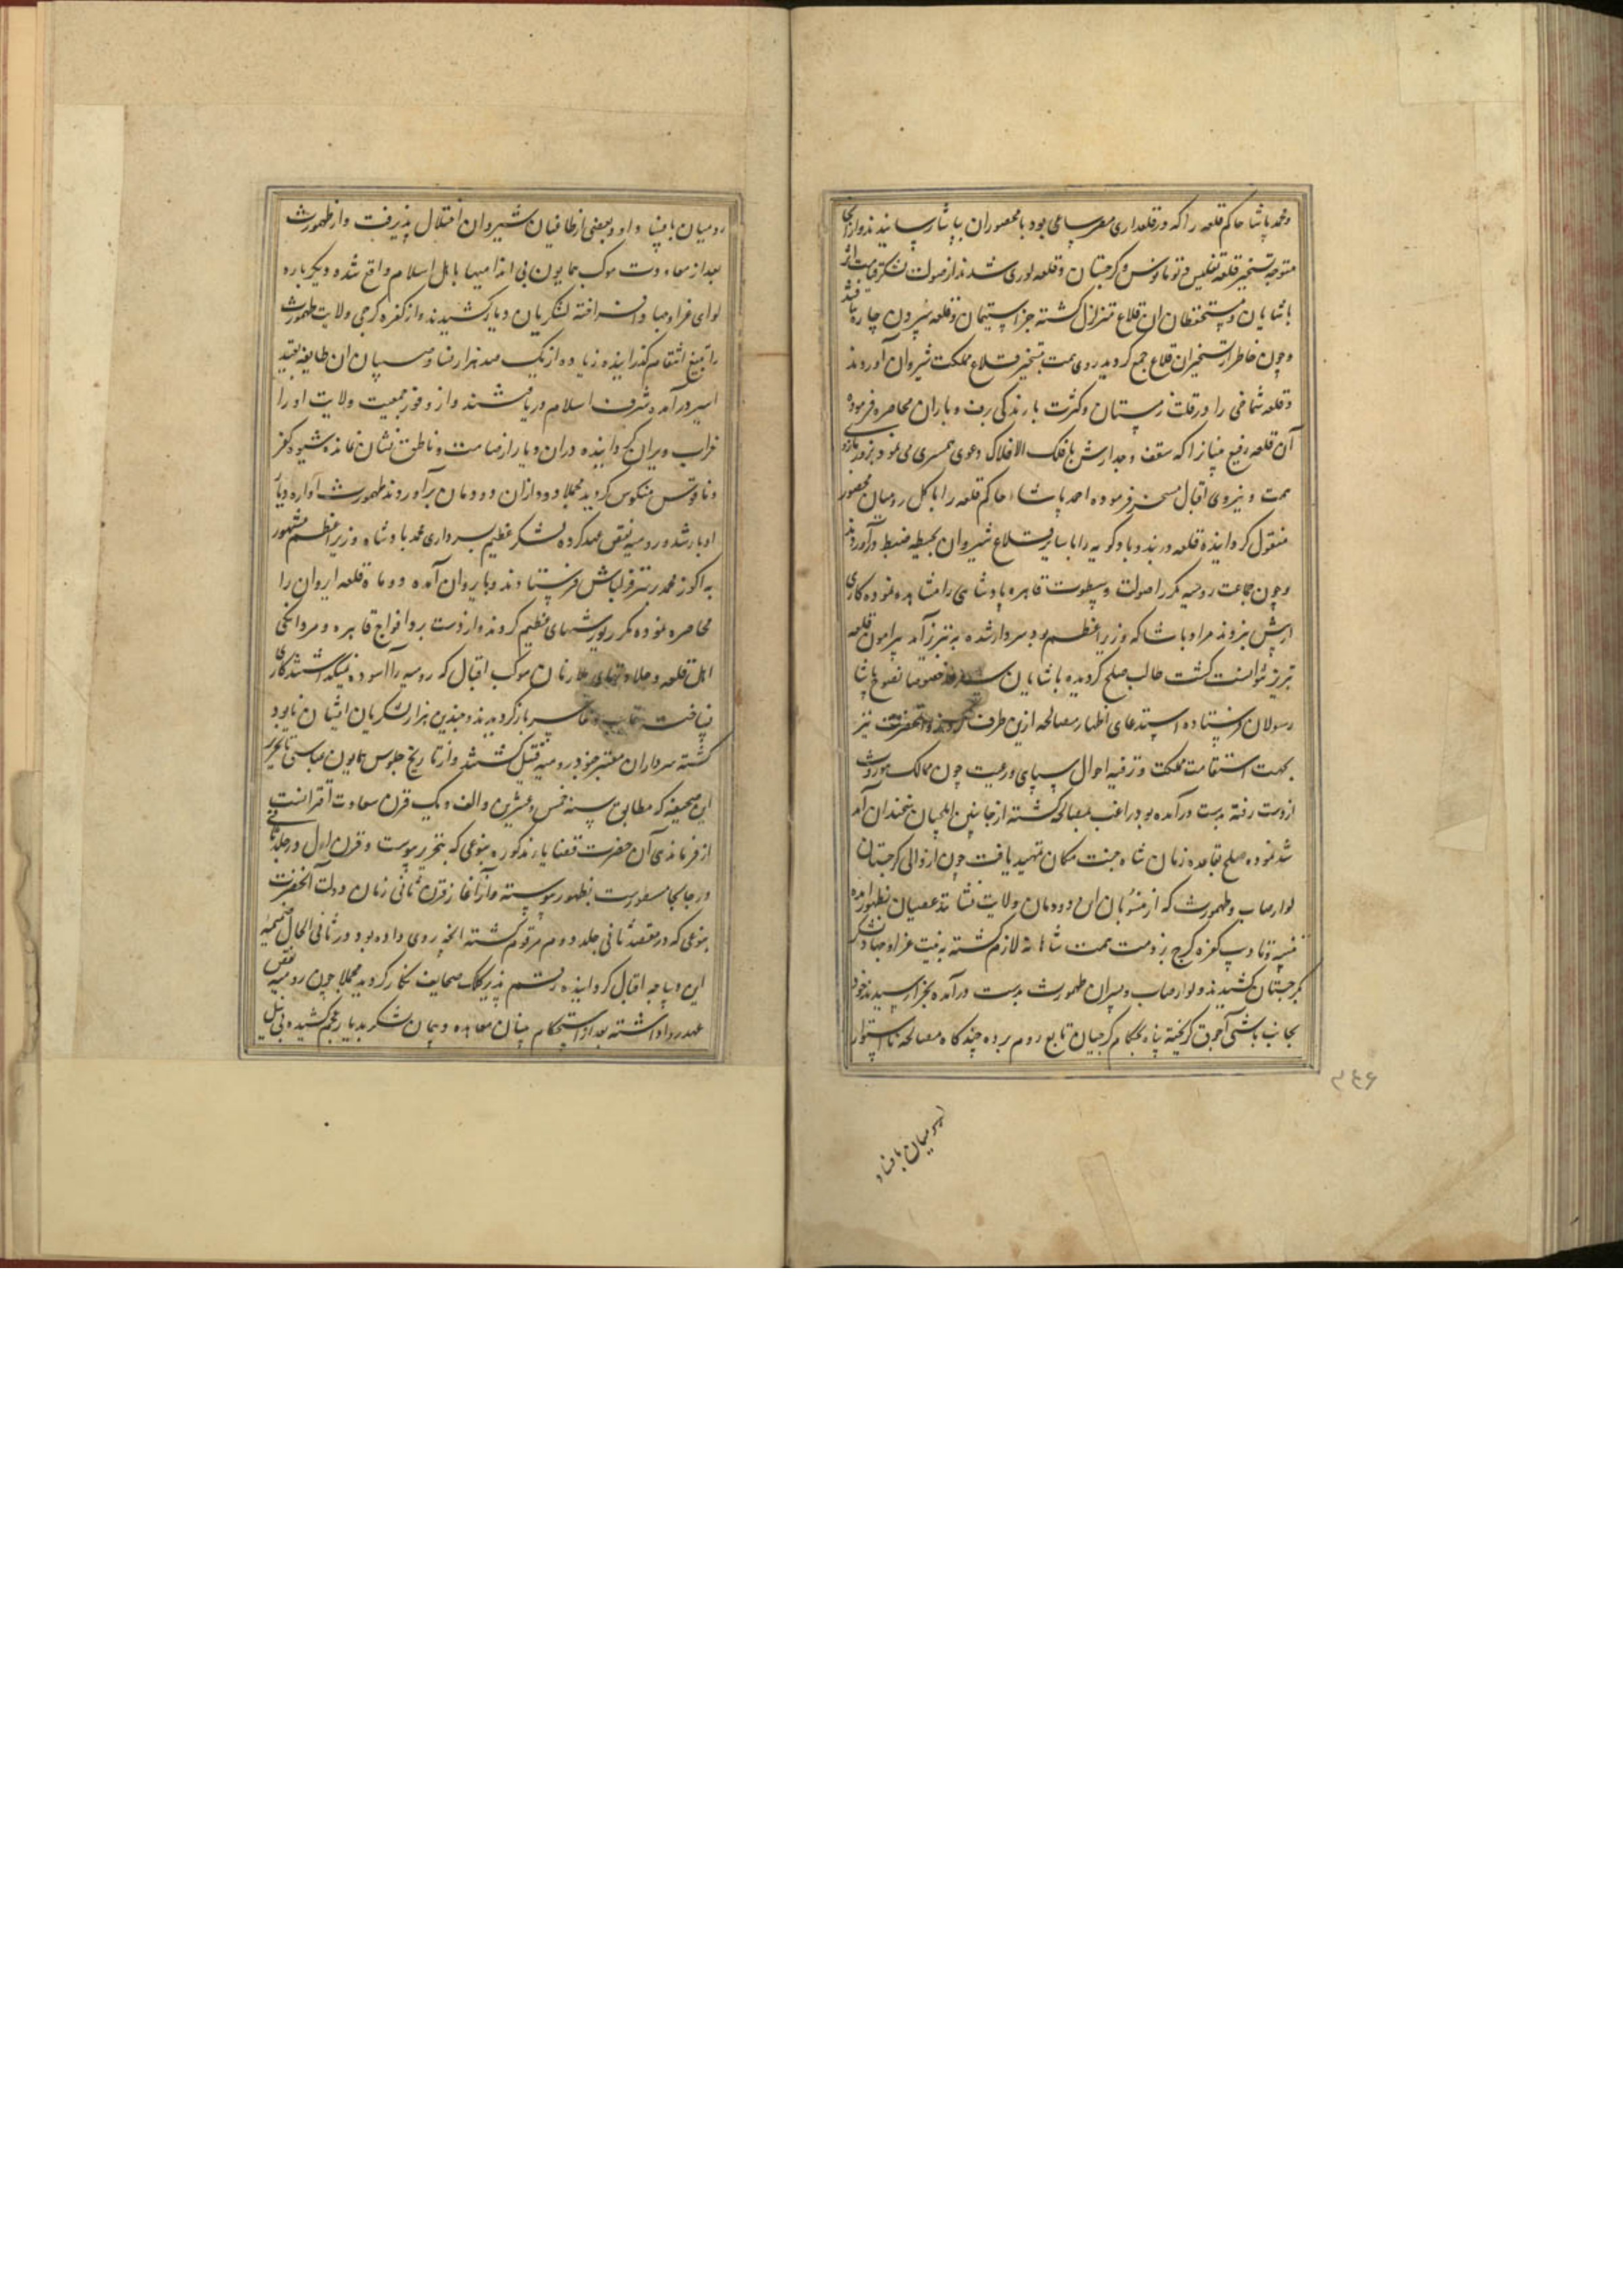 ومحمد پاشا حاکم قلعه را که در قلعداری مصر ساعی بود با محصوران بیاسا رسانیدند و از آنجا
متوجه تسخیر قلعه تفلیس و تومانوس گرجستان و قلعه لوری شدند از صولت لشکر قیامت اثر
پاشایان و مستحفظان آن قلاع متزلزل گشته جز استیمان و قلعه سپردن چاره نیافتند
و چون خاطر از تسخیر آن قلاع جمع گردید روی همت بتسخیر قلاع مملکت شیروان آوردند
و قلعه شماخی را در قلب زمستان و کثرت بارندگی برف و باران محاصره فرموده
آن قلعه رفیع بنیان را که سقف و جدارش با فلک الافلاک دعوی همسری می نمود بزور بازوی
همت و نیروی اقبال مسخر فرموده احمد پاشاء حاکم قلعه را با کل رومیان محصور
مقتول گردانیده قلعه دربند و بادکوبه را با سایر قلاع شیروان بحیطه ضبط درآوردند
و چون جماعت رومیه مکررا صولت و سطوت قاهره پادشاهی را مشاهده نموده کاری
از پیش نبردند مراد پاشا که وزیر اعظم بود سردار شده به تبریز آمد پیرامون قلعه
تبریز نتوانست گشت طالب صلح گردیده پاشایان خصوصا نصوح پاشا
رسولان فرستاده استدعای اظهار مصالحه ازین طرف کردند و آنحضرت نیز
بجهت استقامت مملکت و ترفیه احوال سپاهی و رعیت چون ممالک موروث
از دست رفته بدست درآمده بود راغب مصالحه گشته از جانبین ایلچیان سخندان آمد
شد نموده صلح بقاعده زمان شاه جنت مکان تمهید یافت چون از والی گرجستان
لوارصاب و طهمورث که از منسوبان آن دودمان ولایت نشانند عصیان بظهور آمده
تنبیه و تادیب کفره گرج بر ذمت همت شاهانه لازم گشته به نیت غزا و جهاد لشکر
بگرجستان کشیدند و لوارصاب و پسران طهمورث بدست درآمده بجزا رسیدند خود
بجانب باشی آچوق گریخته پناه بحکام گرجیان تابع روم برده چندگاه مصالحه نااستوار
رومیان بافساد
۳۴۶
رومیان بافساد او و بعضی از طاغیان شیروان اختلال پذیرفت و از طهمورث
بعد از معاودت موکب همایون بی اندامیها با اهل اسلام واقع شده دیگرباره
لوای غزا و جهاد افراخته لشکر بان دیار کشیدند و از کفره گرجی ولایت طهمورث
را به تیغ انتقام گذرانیده زیاده از یک صد هزار نساء و صبیان آن طایفه بقید
اسیر درآمده شرف اسلام دریافتند و از وفور جمعیت ولایت او را
خراب و ویران گردانیده در آن دیار از صامت و ناطق نشان نمانده شیوه کفر
و ناقوس منکوس گردید مجملا دود از آن دودمان برآوردند طهمورث آواره دیار
ادبار شد و رومیه نقض عهد کرده لشکر عظیم بسرداری محمد پادشاه وزیر اعظم مشهور
به اکوز محمد بر سر قزلباش فرستادند و بایروان آمده دو ماه قلعه ایروان را
محاصره نموده مکرر یورشهای عظیم کردند و از دست برد افواج قاهره و مردانگی
اهل قلعه و جلادتهای ملازمان موکب اقبال که رومیه را آسوده نمیگذاشتند کاری
نساخته خایب و خاسر بازگردیدند و چندین هزار لشکریان ایشان نابود
گشته سرداران معتبر خوندرومیه بقتل گشتند و از تاریخ جلوس همایون عباسی تا تحریر
این صحیفه که مطابق سنه خمس و عشرین و الف و یک قرن سعادت اقترانست
از فرماندهی آن حضرت قضایای مذکوره بنوعی که بتحریر پیوست و قرن اول در جلد ثانی
در جابجا مسطورست بظهور پیوسته و از آغاز قرن ثانی زمان دولت آنحضرت
بنوعی که در مقصد ثانی جلد دوم مرقوم گشته آنچه روی داده بود در ثانی الحال ضمیمه
این دیباجه اقبال گردانیده رقم پذیر کلک صحایف نگار گردید مجملا چون رومیه نقض
عهد روا داشته بعد از استحکام بنیان معاهده و پیمان لشکر بدیار عجم کشیده بی نیل